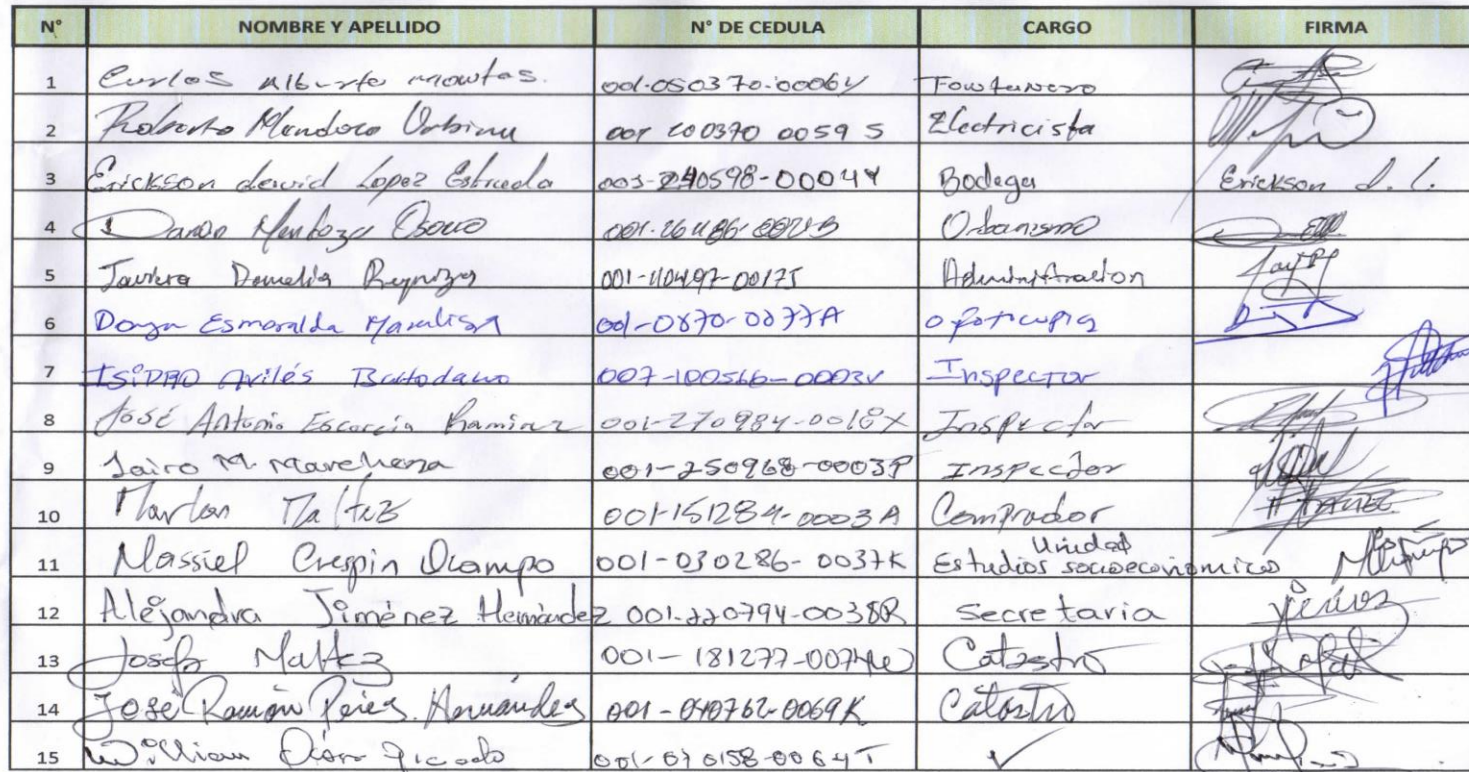 N° NOMBRE Y APELLIDO N° DE CEDULA CARGO FIRMA
1 Carlos Alberto 001-050370-0006V Fontanero
2 Roberto Mendoza Urbina 001 200370 0059 S Electricista
3 Erickson david Lopez Estrada 003-240598-0004Y Bodega Erickson d. l.
4 Mendoza Osorio Urbanismo
5 Reynoza 001-110497-0017J
6 Esmeralda 001-0870-0077A
7 ISIDRO Avilés Bartodano 007-100566-0003V Inspector
8 José Antonio Escorcia Ramirez 001-270984-0018X Inspector
9 Jairo M. Marchena 001-250968-0003P Inspector
10 Marlon Maltez 001-151284-0003A Comprador
11 Massiel Crespin Ocampo 001-030286-0037K Unidad Estudios socioeconomicos
12 Alejandra Jiménez Hernández 001-220794-0038R Secretaria
13 Josefa Maltez 001-181277-0074W Catastro
14 José Ramón Pérez Hernández 001-040762-0069K Catastro
15 William 001-070158-0064T ✓